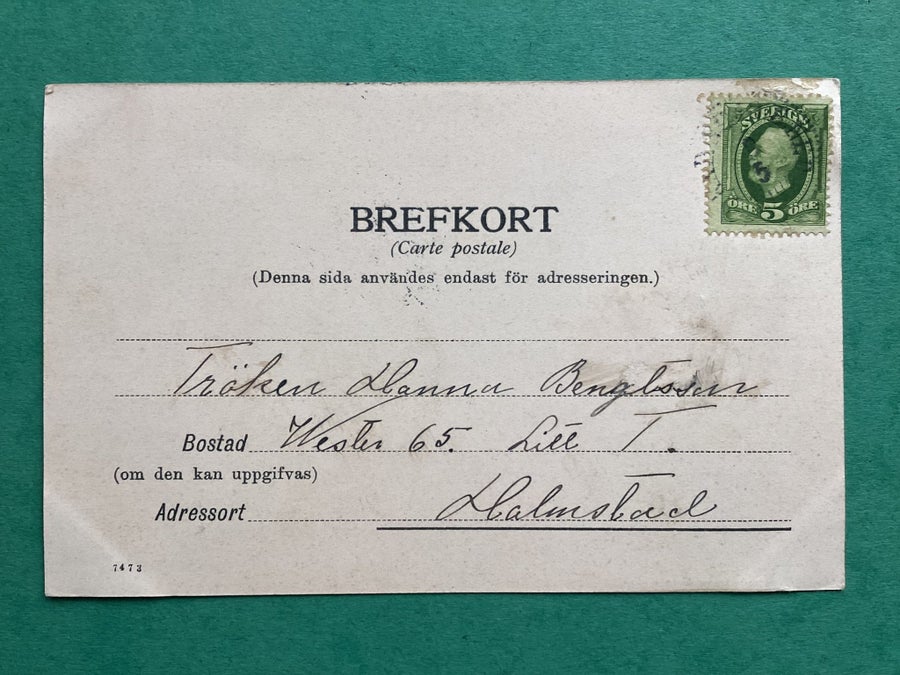 SVERIGE
ÖRE 5 ÖRE
BREFKORT
(Carte postale)
(Denna sida användes endast för adresseringen.)
Fröken Hanna Bengtsson
Bostad Wester 65. Litt T.
(om den kan uppgifvas)
Adressort Halmstad
7473